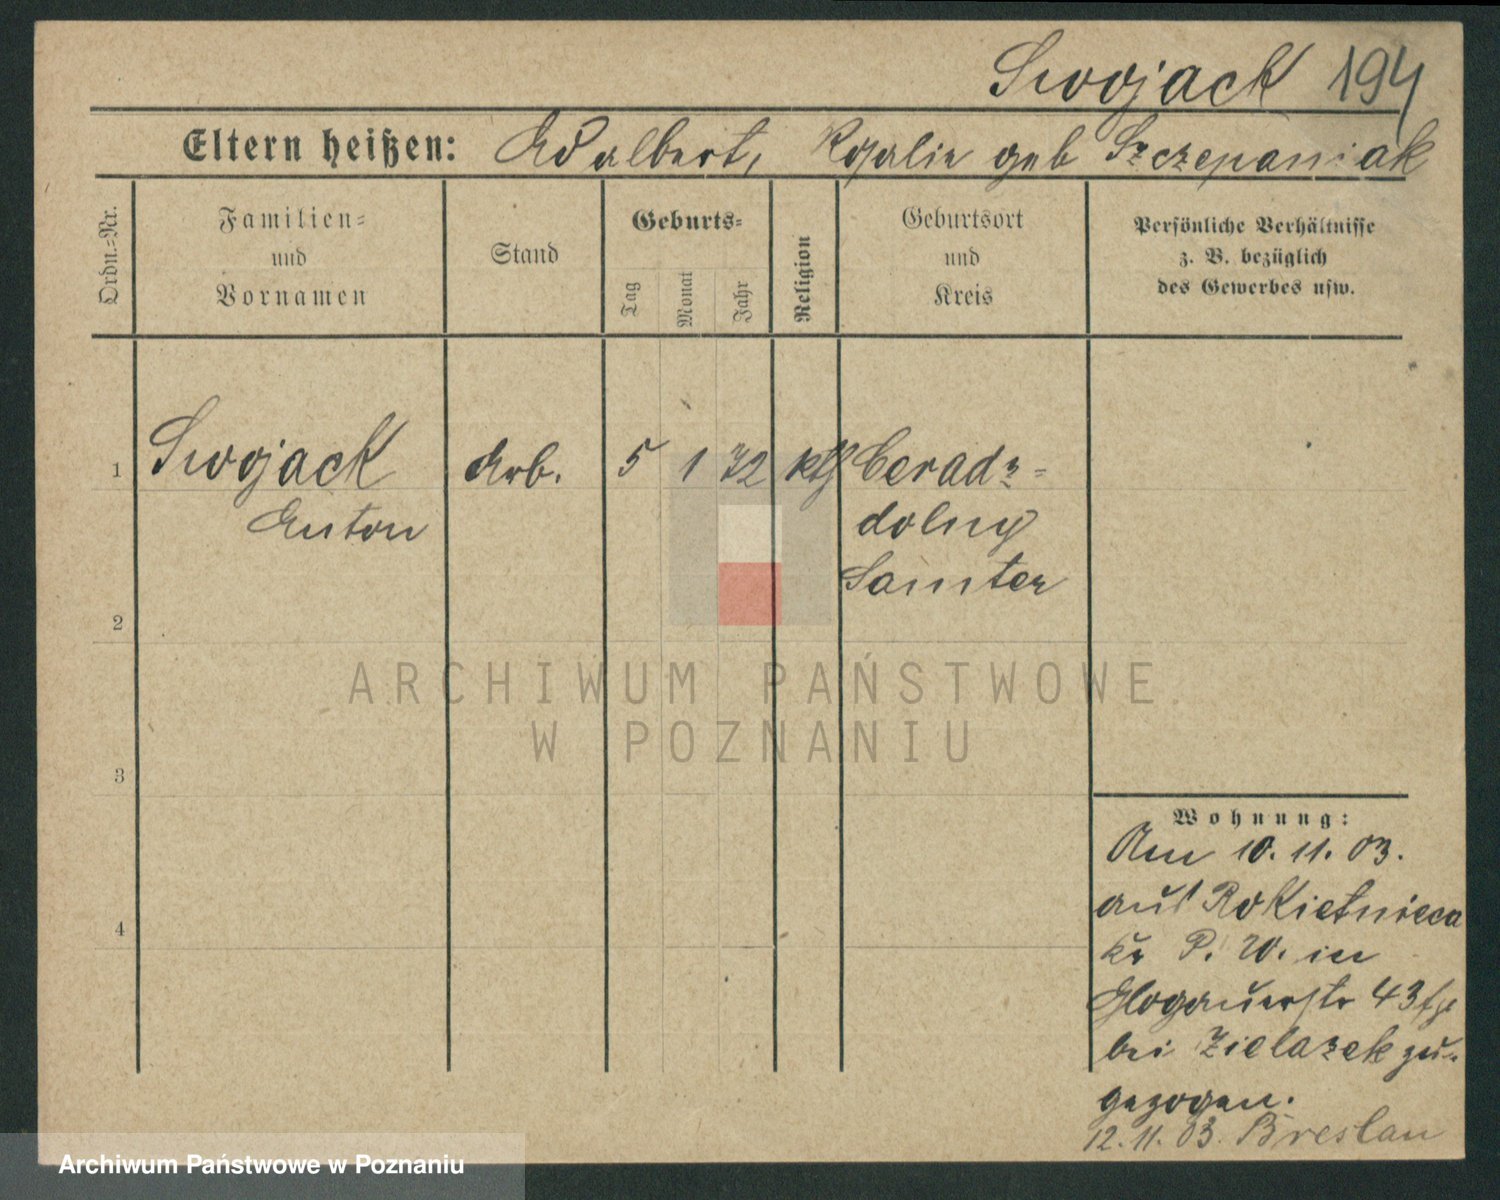 Swojack 194
Eltern heißen: Adalbert, Rosalie geb Szczepaniak
Ordn.-Nr.
Familien-
und
Vornamen
Stand
Geburts-
Tag
Monat
Jahr
Religion
Geburtsort
und
Kreis
Persönliche Verhältnisse
z. B. bezüglich
des Gewerbes usw.
1 Swojack Arb. 5 1 72 kth Ceradz-
Anton dolny
Samter
2
3
4
ARCHIWUM PAŃSTWOWE
W POZNANIU
Wohnung:
Am 10. 11. 03.
aus Rokietnica
Kr P. W. in
Glogauerstr 43
bei Zielazek zu-
gezogen.
12. 11. 03. Breslau
Archiwum Państwowe w Poznaniu